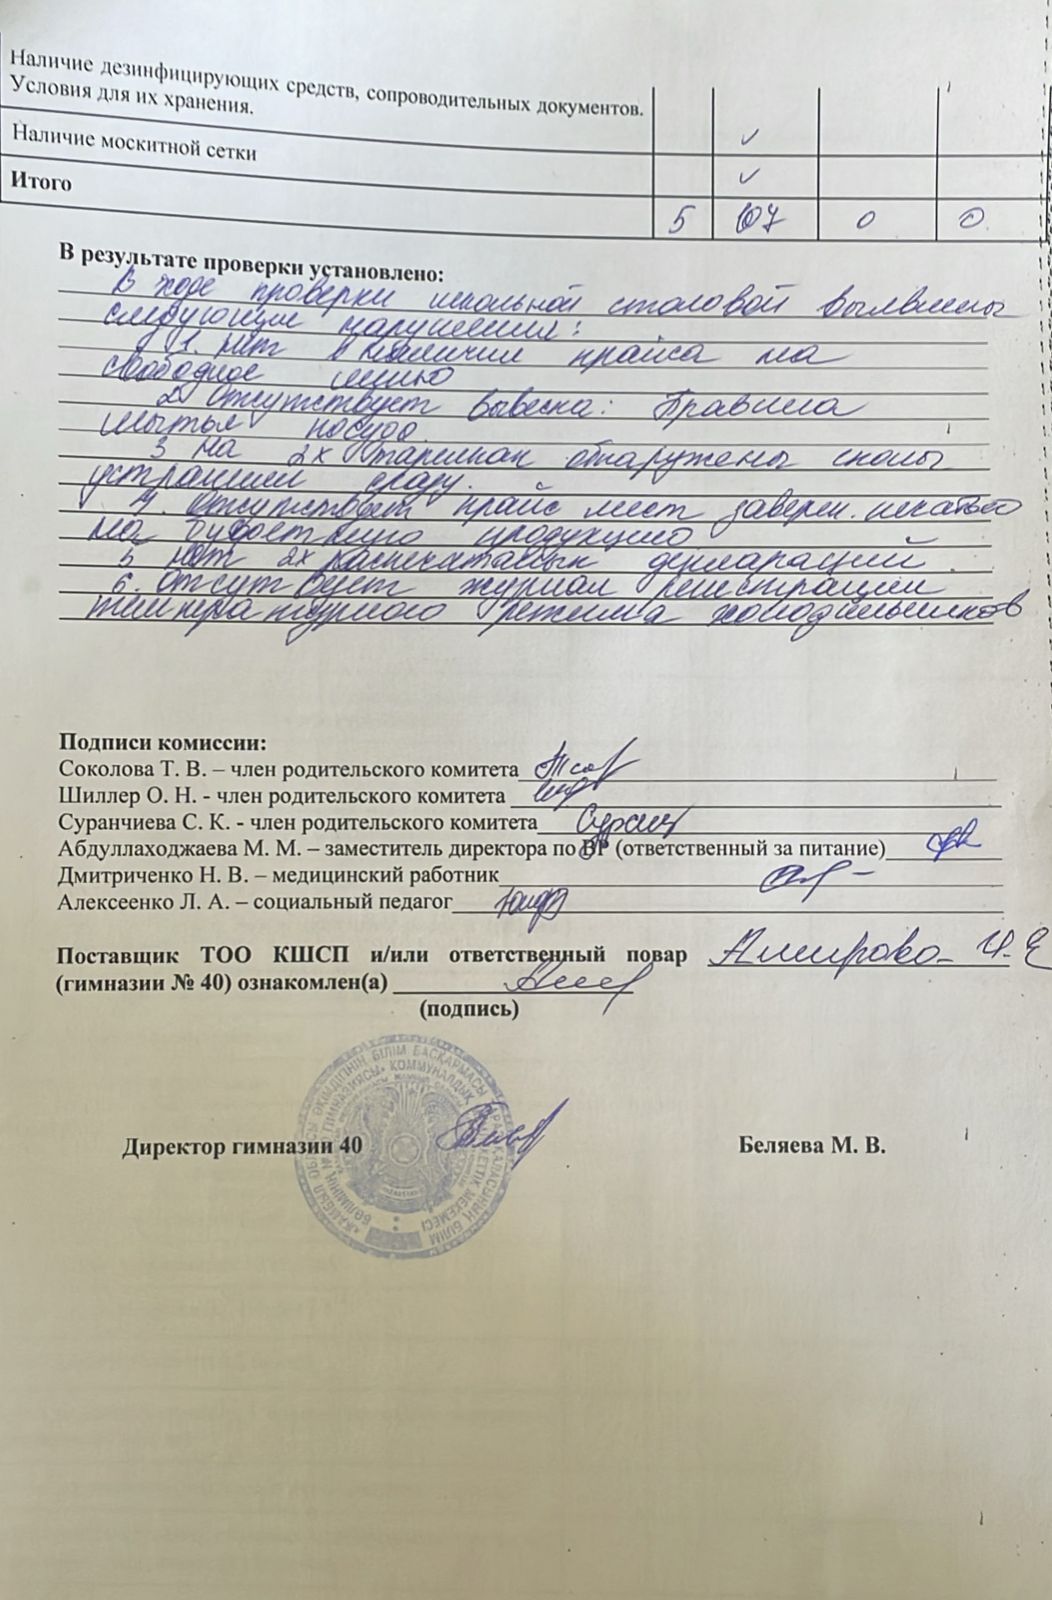 Наличие дезинфицирующих средств, сопроводительных документов.
Условия для их хранения.
Наличие москитной сетки
Итого 5 107 0 0
В результате проверки установлено:
В ходе проверки школьной столовой выявлены
следующие нарушения:
1. нет в наличии прайса на
свободное меню
2. Отсутствует вывеска: Правила
мытья посуды.
3 На 2х тарелках обнаружены сколы
устранили сразу.
4. Отсутствует прайс лист заверен. печатью
на буфетную продукцию
5 нет 2х распечатанных деклараций.
6. Отсутствует журнал регистрации
температурного режима холодильников
Подписи комиссии:
Соколова Т. В. – член родительского комитета
Шиллер О. Н. - член родительского комитета
Суранчиева С. К. - член родительского комитета
Абдуллаходжаева М. М. – заместитель директора по ВР (ответственный за питание)
Дмитриченко Н. В. – медицинский работник
Алексеенко Л. А. – социальный педагог
Поставщик ТОО КШСП и/или ответственный повар
(гимназии № 40) ознакомлен(а)
(подпись)
Директор гимназии 40 Беляева М. В.